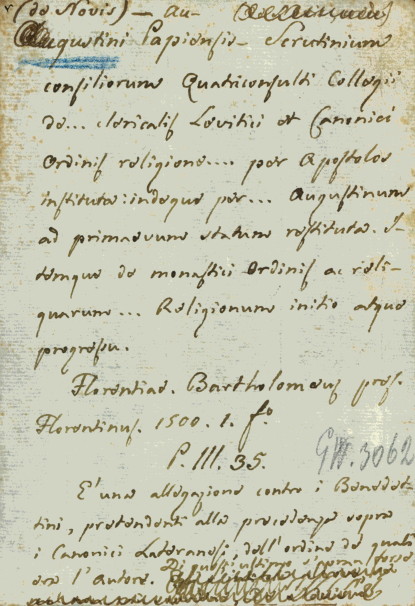 (de Novis) — Au-
Augustini Papiensis — Scrutinium
consiliorum Quatriconsulti Collegii
de... clericalis Levitici et Canonici
Ordinis religione.... per Apostolos
instituta: indeque per... Augustinum
ad primaevum statum restituta. I-
temque de monastici Ordinis ac reli-
quarum... Religionum initio atque
progressu.
Florentiae. Bartholomeus pres.
Florentinus. 1500. 1. fo
P. III. 35.
GW. 3062
E' una allegazione contro i Benedet-
tini, pretendenti alla precedenza sopra
i Canonici Lateranesi, dell'ordine de' quali
era l'autore. Di quest'ultimo